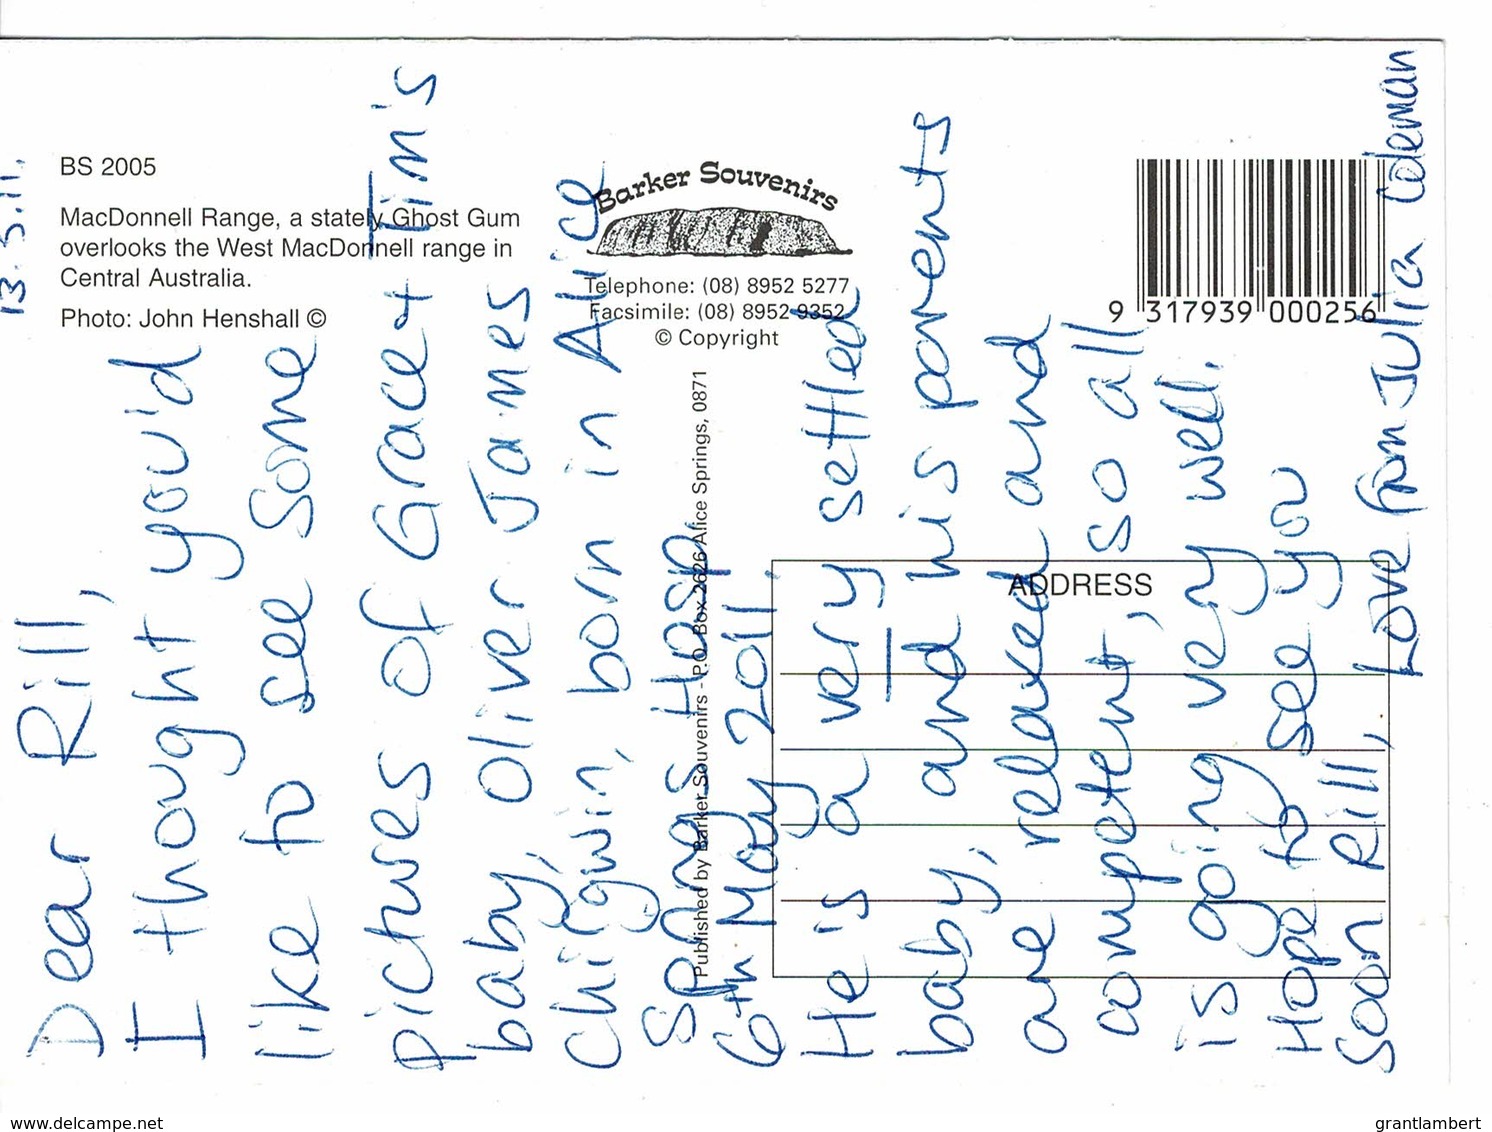 BS 2005
MacDonnell Range, a stately Ghost Gum
overlooks the West MacDonnell range in
Central Australia.
Photo: John Henshall ©
Barker Souvenirs
Telephone: (08) 8952 5277
Facsimile: (08) 8952 9352
© Copyright
Published by Barker Souvenirs - P.O. Box 2626 Alice Springs, 0871
9 317939 000256
ADDRESS
13.5.11.
Dear Rill,
I thought you'd
like to see some
pictures of Grace + Tim's
baby, Oliver James
Chirgwin, born in Alice
Springs Hosp
6th May 2011.
He is a very settled
baby, and his parents
are relaxed and
competent, so all
is going very well.
Hope to see you
soon Rill,
Love from Julia Coleman
www.delcampe.net
grantlambert